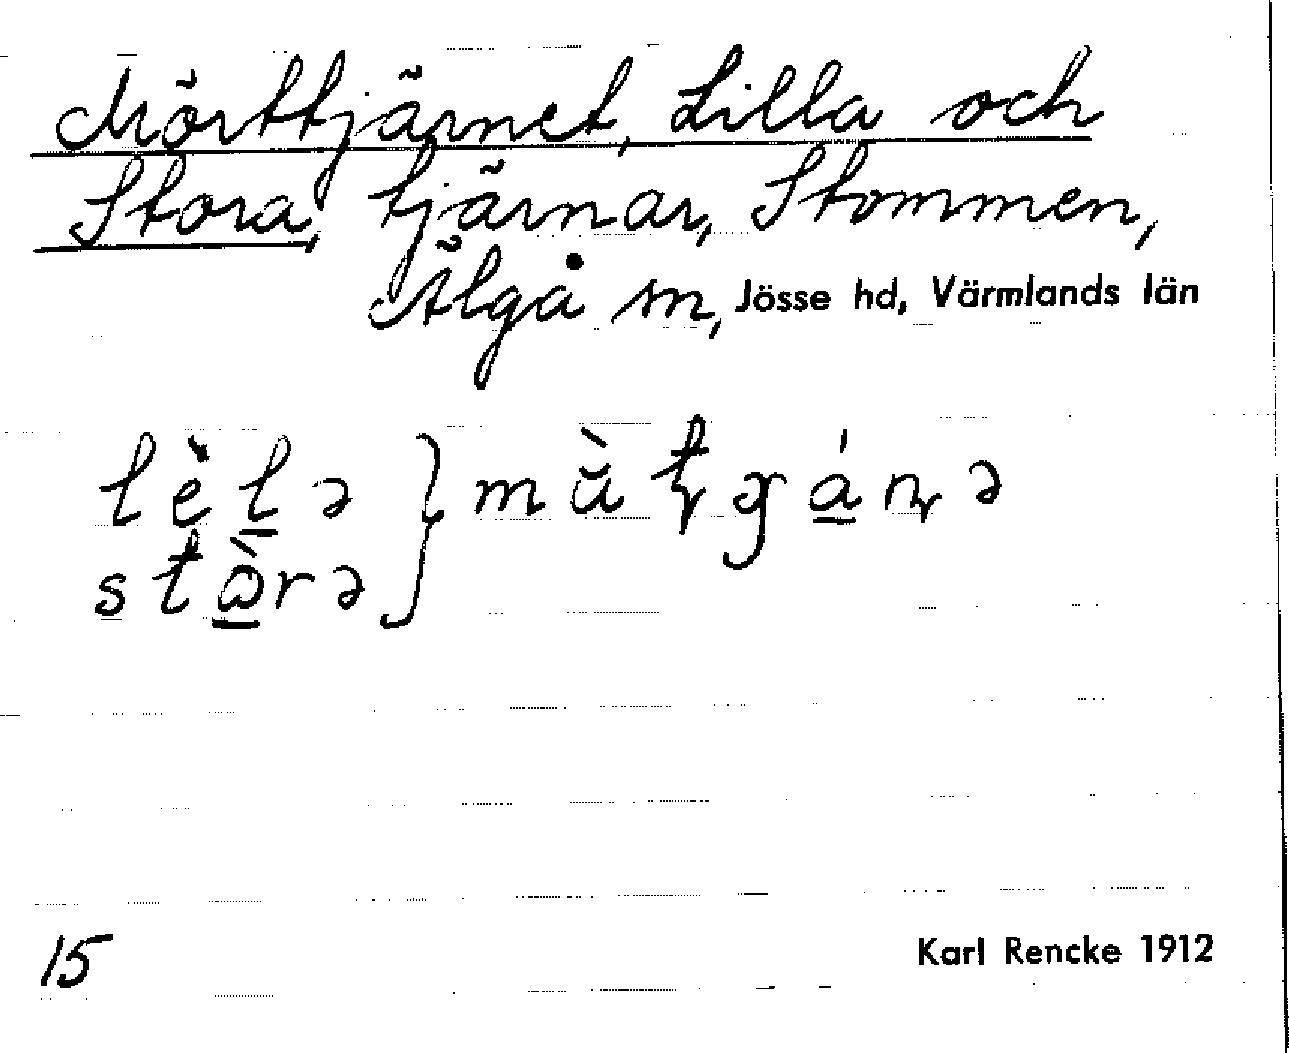 Mörttjärnet, Lilla och
Stora, tjärnar, Stommen,
Älgå sn, Jösse hd, Värmlands län
15
Karl Rencke 1912